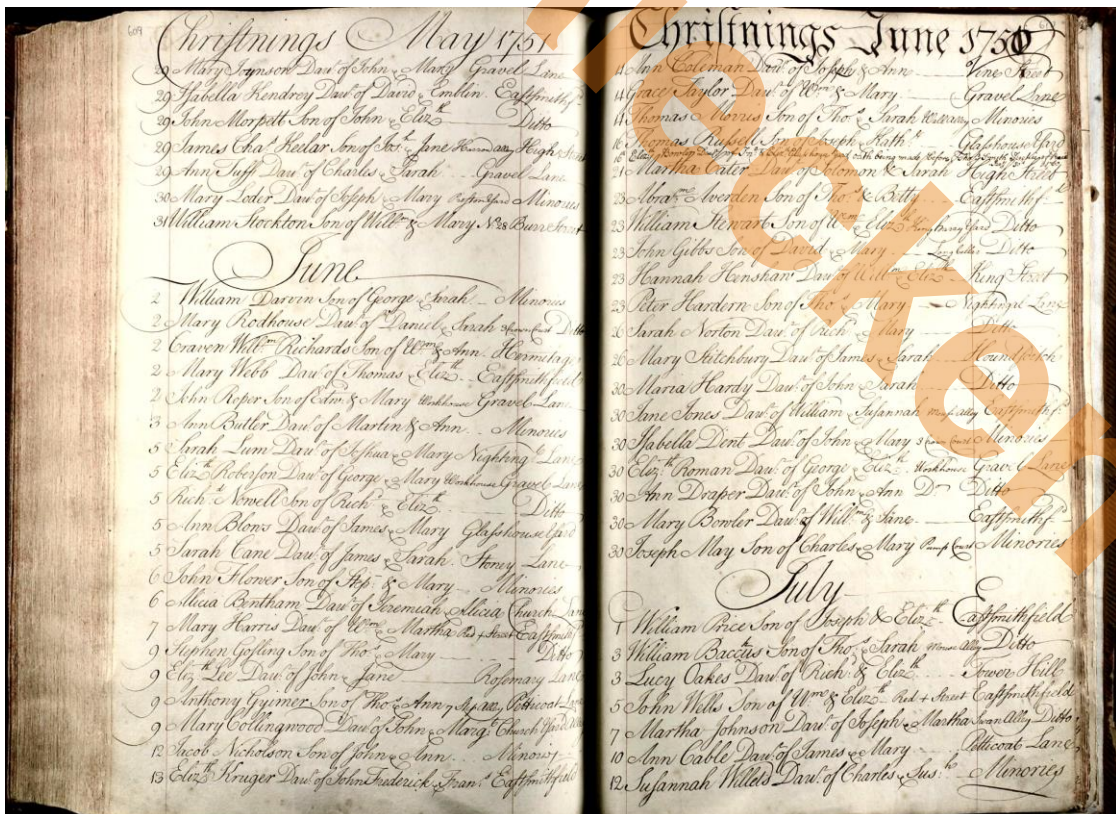 609
Christnings May 1751
29 Mary Joynson Daur. of John & Mary Gravel Lane
29 Isabella Kendrey Daur. of David & Emblin. Eastsmithf.d
29 John Morpett Son of John & Eliz.th Ditto
29 James Cha.s Keelar Son of Jos. & Jane High Street
29 Ann Tuff Daur. of Charles & Sarah Gravel Lane
30 Mary Loder Daur. of Joseph & Mary Minories
31 William Stockton Son of Will.m & Mary No. 28 Burr Street
June
2 William Darvin Son of George & Sarah Minories
2 Mary Rodhouse Daur. of Daniel & Sarah 3 Crown Court Ditto
2 Craven Will.m Richards Son of W.m & Ann. Hermitage
2 Mary Webb Daur. of Thomas & Eliz.th Eastsmithfield
2 John Roper Son of Edw.d & Mary Workhouse Gravel Lane
3 Ann Butler Daur. of Martin & Ann. Minories
5 Sarah Lum Daur. of Joshua & Mary Nighting.l Lane
5 Eliz.th Roberson Daur. of George & Mary Workhouse Gravel Lane
5 Rich.d Nowell Son of Rich.d & Eliz.th Ditto
5 Ann Blows Daur. of James & Mary Glasshouse Yard
5 Sarah Cane Daur. of James & Sarah. Stoney Lane
6 John Flower Son of Step. & Mary Minories
6 Alicia Bentham Daur. of Jeremiah & Alicia Church Lane
7 Mary Harris Daur. of W.m & Martha Red + Street Eastsmithf.d
9 Stephen Gosling Son of Tho.s & Mary Ditto
9 Eliz.th Lee Daur. of John & Jane Rosemary Lane
9 Anthony Gyimer Son of Tho.s & Ann Petticoat Lane
9 Mary Collingwood Daur. of John & Marg.t Church Yard
12 Jacob Nicholson Son of John & Ann. Minories
13 Eliz.th Kruger Daur. of John Frederick & Fran.s Eastsmithfield
Christnings June 1750
14 Ann Coleman Daur. of Joseph & Ann Vine Street
14 Grace Taylor Daur. of W.m & Mary Gravel Lane
14 Thomas Morris Son of Tho.s & Sarah Minories
16 Thomas Russell Son of Joseph & Kath. Glasshouse Yard
21 Martha Eater Daur. of Solomon & Sarah High Street
23 Abra.m Averden Son of Tho.s & Betty Eastsmithf.d
23 William Stewart Son of W.m & Eliz.th Yard Ditto
23 John Gibbs Son of David & Mary Ditto
23 Hannah Henshaw Daur. of Will.m & Eliz. King Street
23 Peter Hardern Son of Tho.s & Mary Nighting.l Lane
26 Sarah Norton Daur. of Rich.d & Mary Ditto
26 Mary Stitchbury Daur. of James & Sarah Houndsditch
30 Maria Hardy Daur. of John & Sarah Ditto
30 Jane Jones Daur. of William & Susannah Alley Eastsmithf.d
30 Isabella Dent Daur. of John & Mary 3 Crown Court Minories
30 Eliz.th Roman Daur. of George & Eliz.th Workhouse Gravel Lane
30 Ann Draper Daur. of John & Ann D.o Ditto
30 Mary Bowler Daur. of Will.m & Jane Eastsmithf.d
30 Joseph May Son of Charles & Mary Pump Court Minories
July
1 William Price Son of Joseph & Eliz.th Eastsmithfield
3 William Bacctus Son of Tho.s & Sarah Alley Ditto
3 Lucy Oakes Daur. of Rich.d & Eliz.th Tower Hill
5 John Wells Son of W.m & Eliz.th Red + Street Eastsmithfield
7 Martha Johnson Daur. of Joseph & Martha Swan Alley Ditto
10 Ann Cable Daur. of James & Mary Petticoat Lane
12 Susannah Willets Daur. of Charles & Sus.h Minories